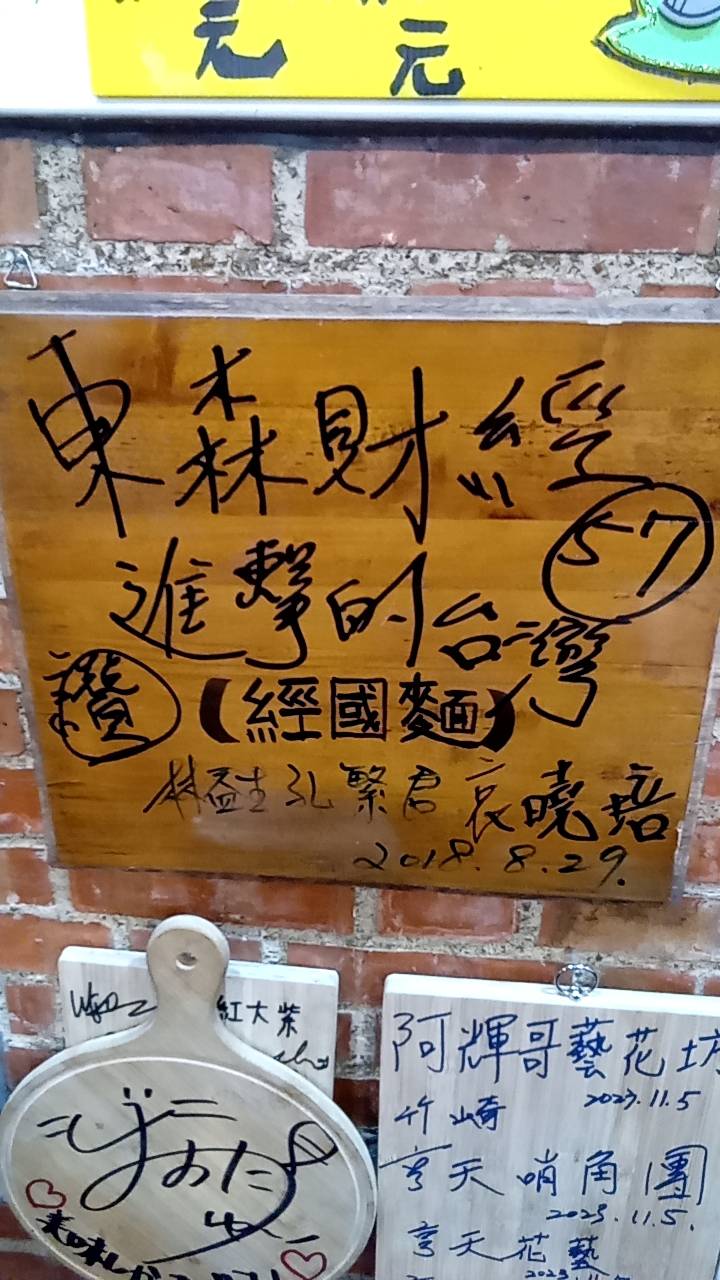 元 元
東森財經
57
進擊的台灣
讚
(經國麵)
林益生 孔繁君 袁曉培
2018.8.29.
紅大柴
阿輝哥藝花坊
2023.11.5
竹崎
亨天哨角團
2023.11.5.
亨天花藝